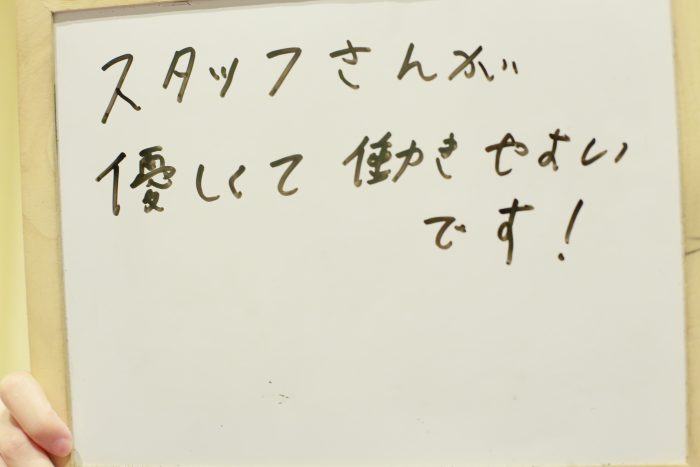 スタッフさんが
優しくて働きやすい
です!